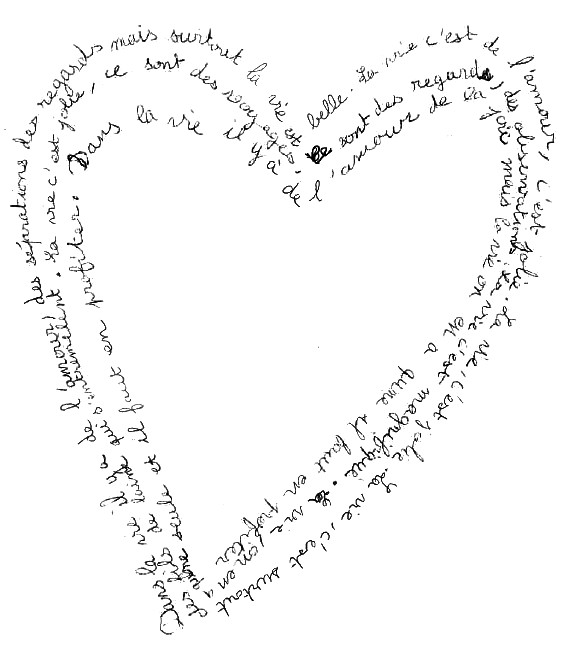 Dans la vie il y a de l'amour, des séparations des regards mais surtout la vie est belle. La vie c'est de l'amour, c'est jolie. La vie, c'est jolie. La vie, c'est surtout
des fils de laine qui s'entremêlent. La vie c'est jolie, ce sont des voyages, ce sont des regards, des observations. La vie c'est magnifique. La vie on en a
qune seule et il faut en profiter. Dans la vie il y a de l'amour de la joie mais la vie on en a qune il faut en profiter